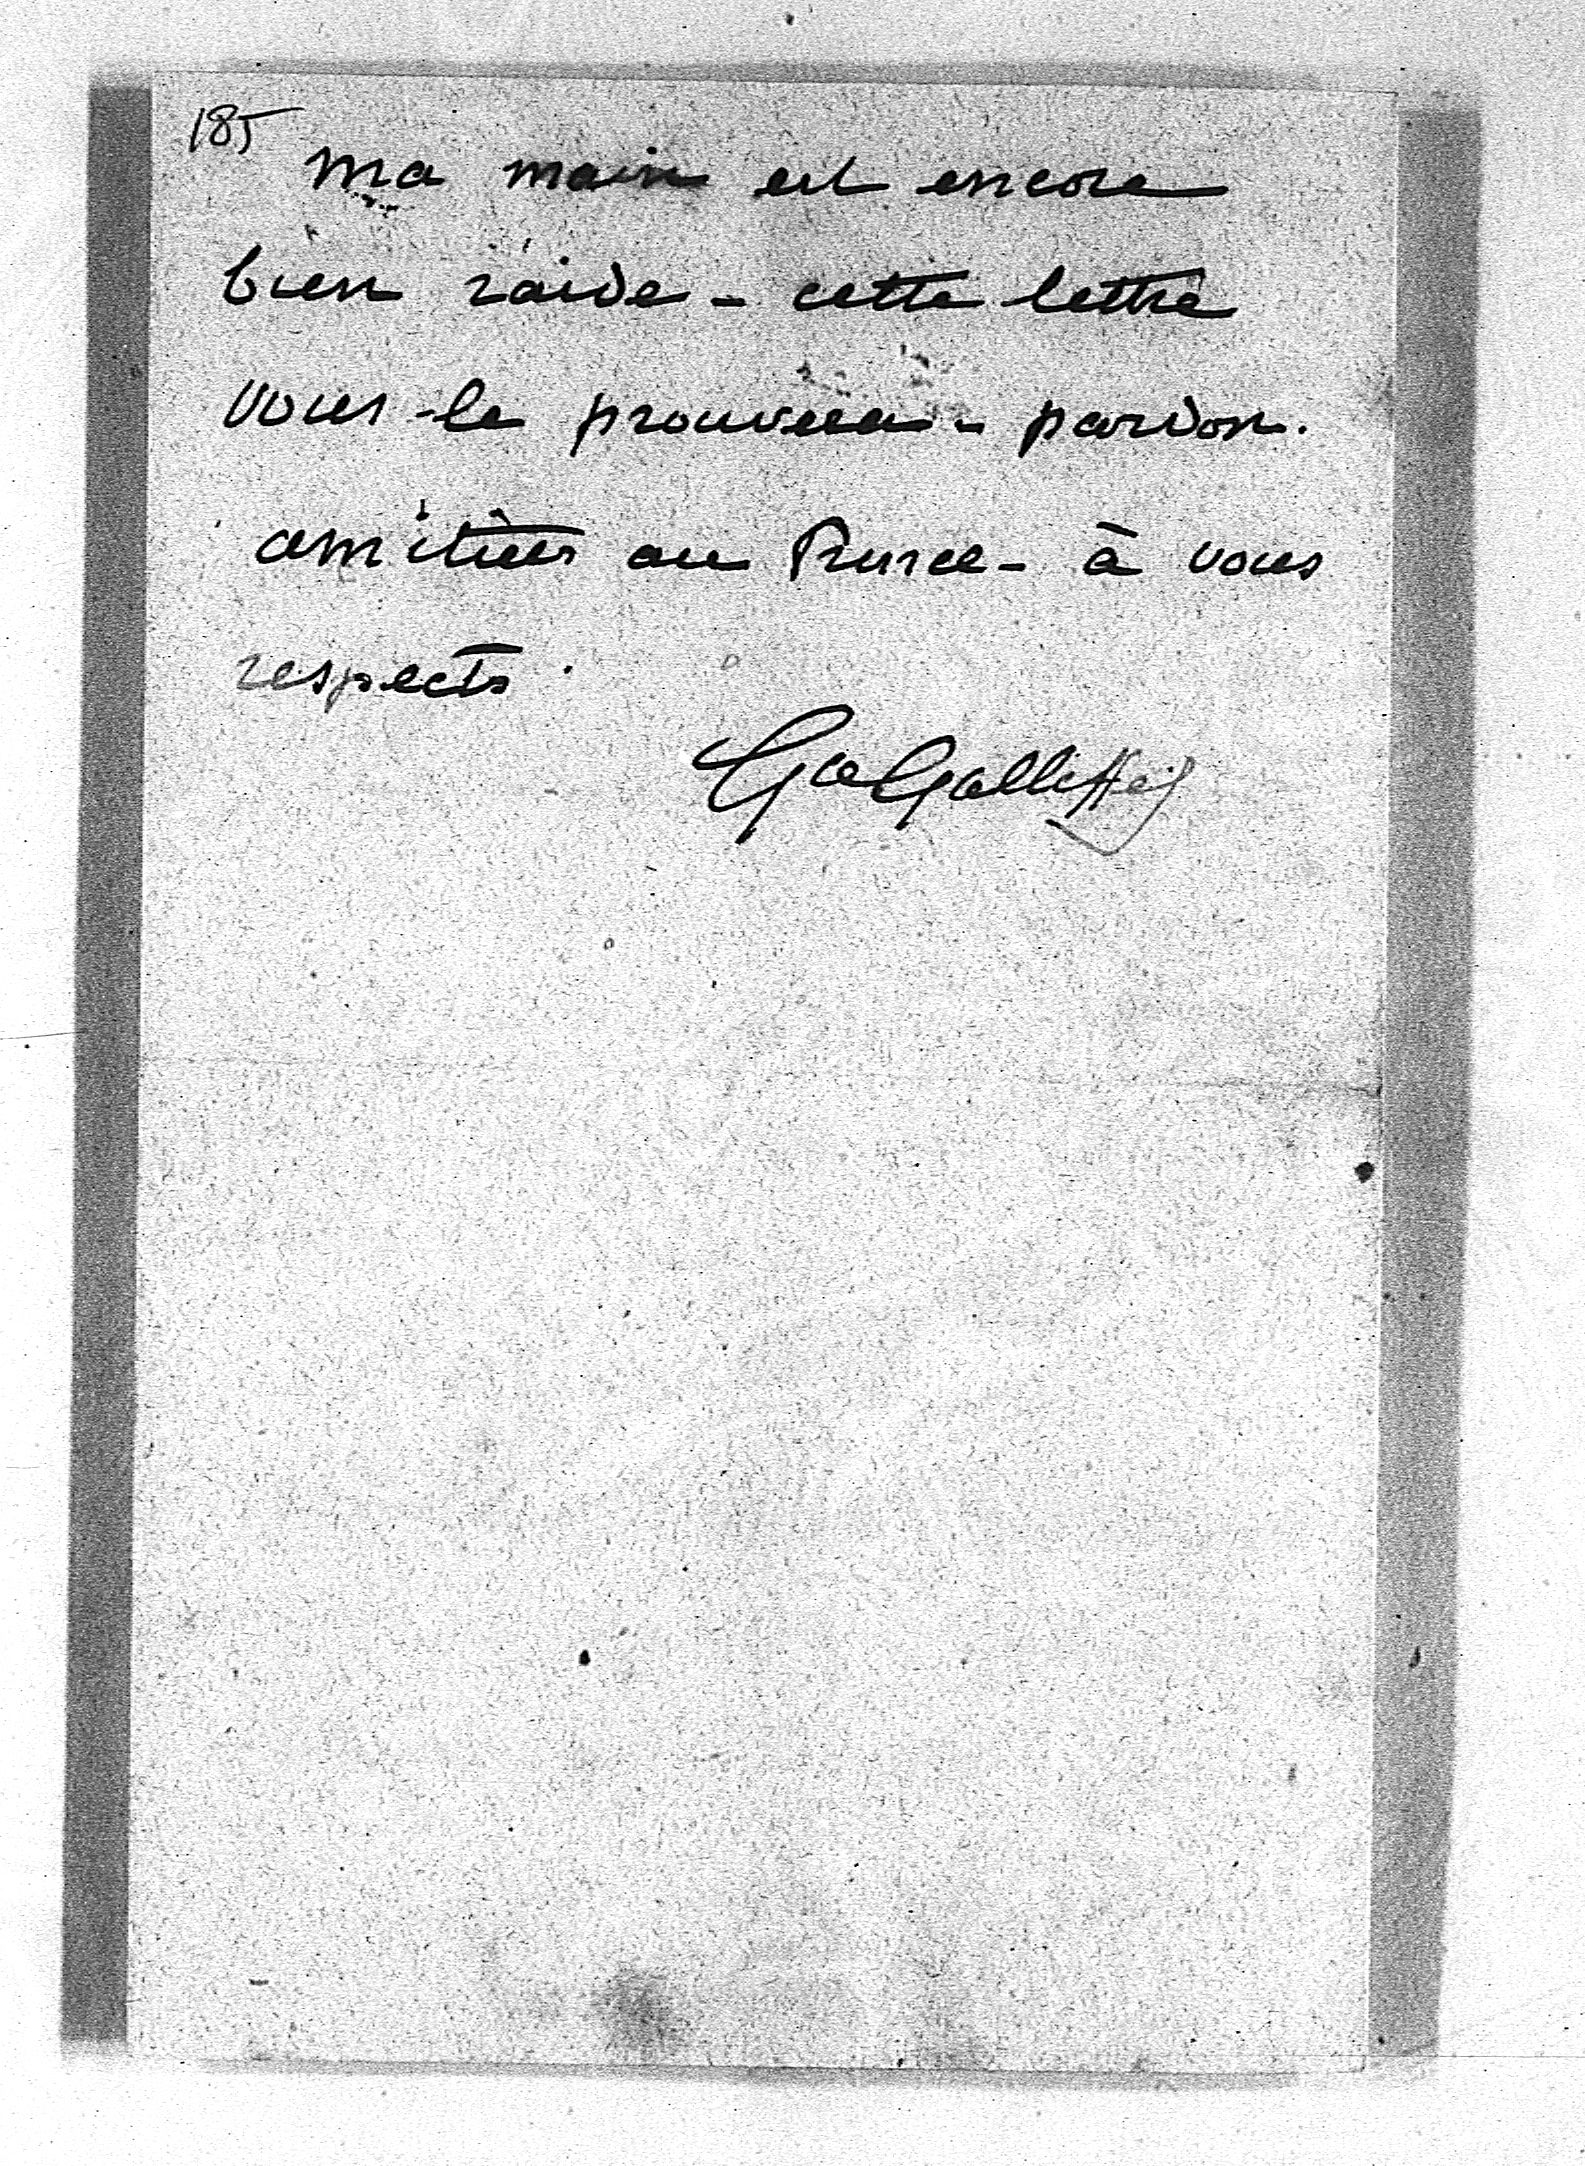 185
Ma main est encore
bien raide - cette lettre
vous le prouvera - pardon.
amitiés au Prince - à vous
respects.
Ga Galliffet